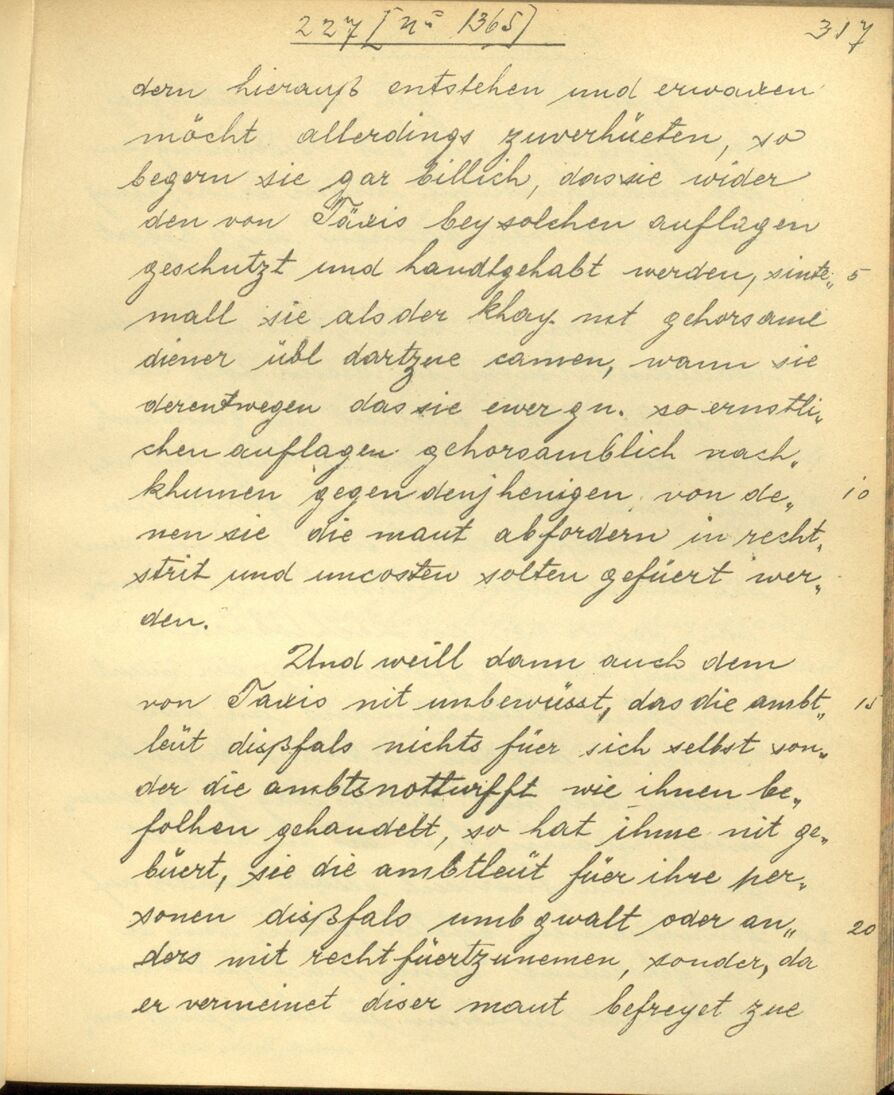 227 [nº 1365] 317
dern hierauß entstehen und erwaxen
möcht allerdings zuverhüeten, so
begern sie gar billich, das sie wider
den von Täxis bey solchen auflagen
geschutzt und handtgehabt werden, sinte„ 5
mall sie als der khay. mt gehorsame
diener übl dartzue camen, wann sie
derentwegen das sie ewer gn. so ernstli„
chen auflagen gehorsamblich nach„
khumen gegen denjhenigen von de„ 10
nen sie die maut abfordern in recht„
strit und uncosten solten gefüert wer„
den.
Und weill dann auch dem
von Taxis nit unbewüsst, das die ambt„ 15
leüt dißfals nichts füer sich selbst son„
der die ambtsnotturfft wie ihnen be„
folhen gehandelt, so hat ihme nit ge„
büert, sie die ambtleüt füer ihre per„
sonen dißfals umb gwalt oder an„ 20
ders mit recht füertzunemen, sonder, da
er vermeinet diser maut befreyet zue